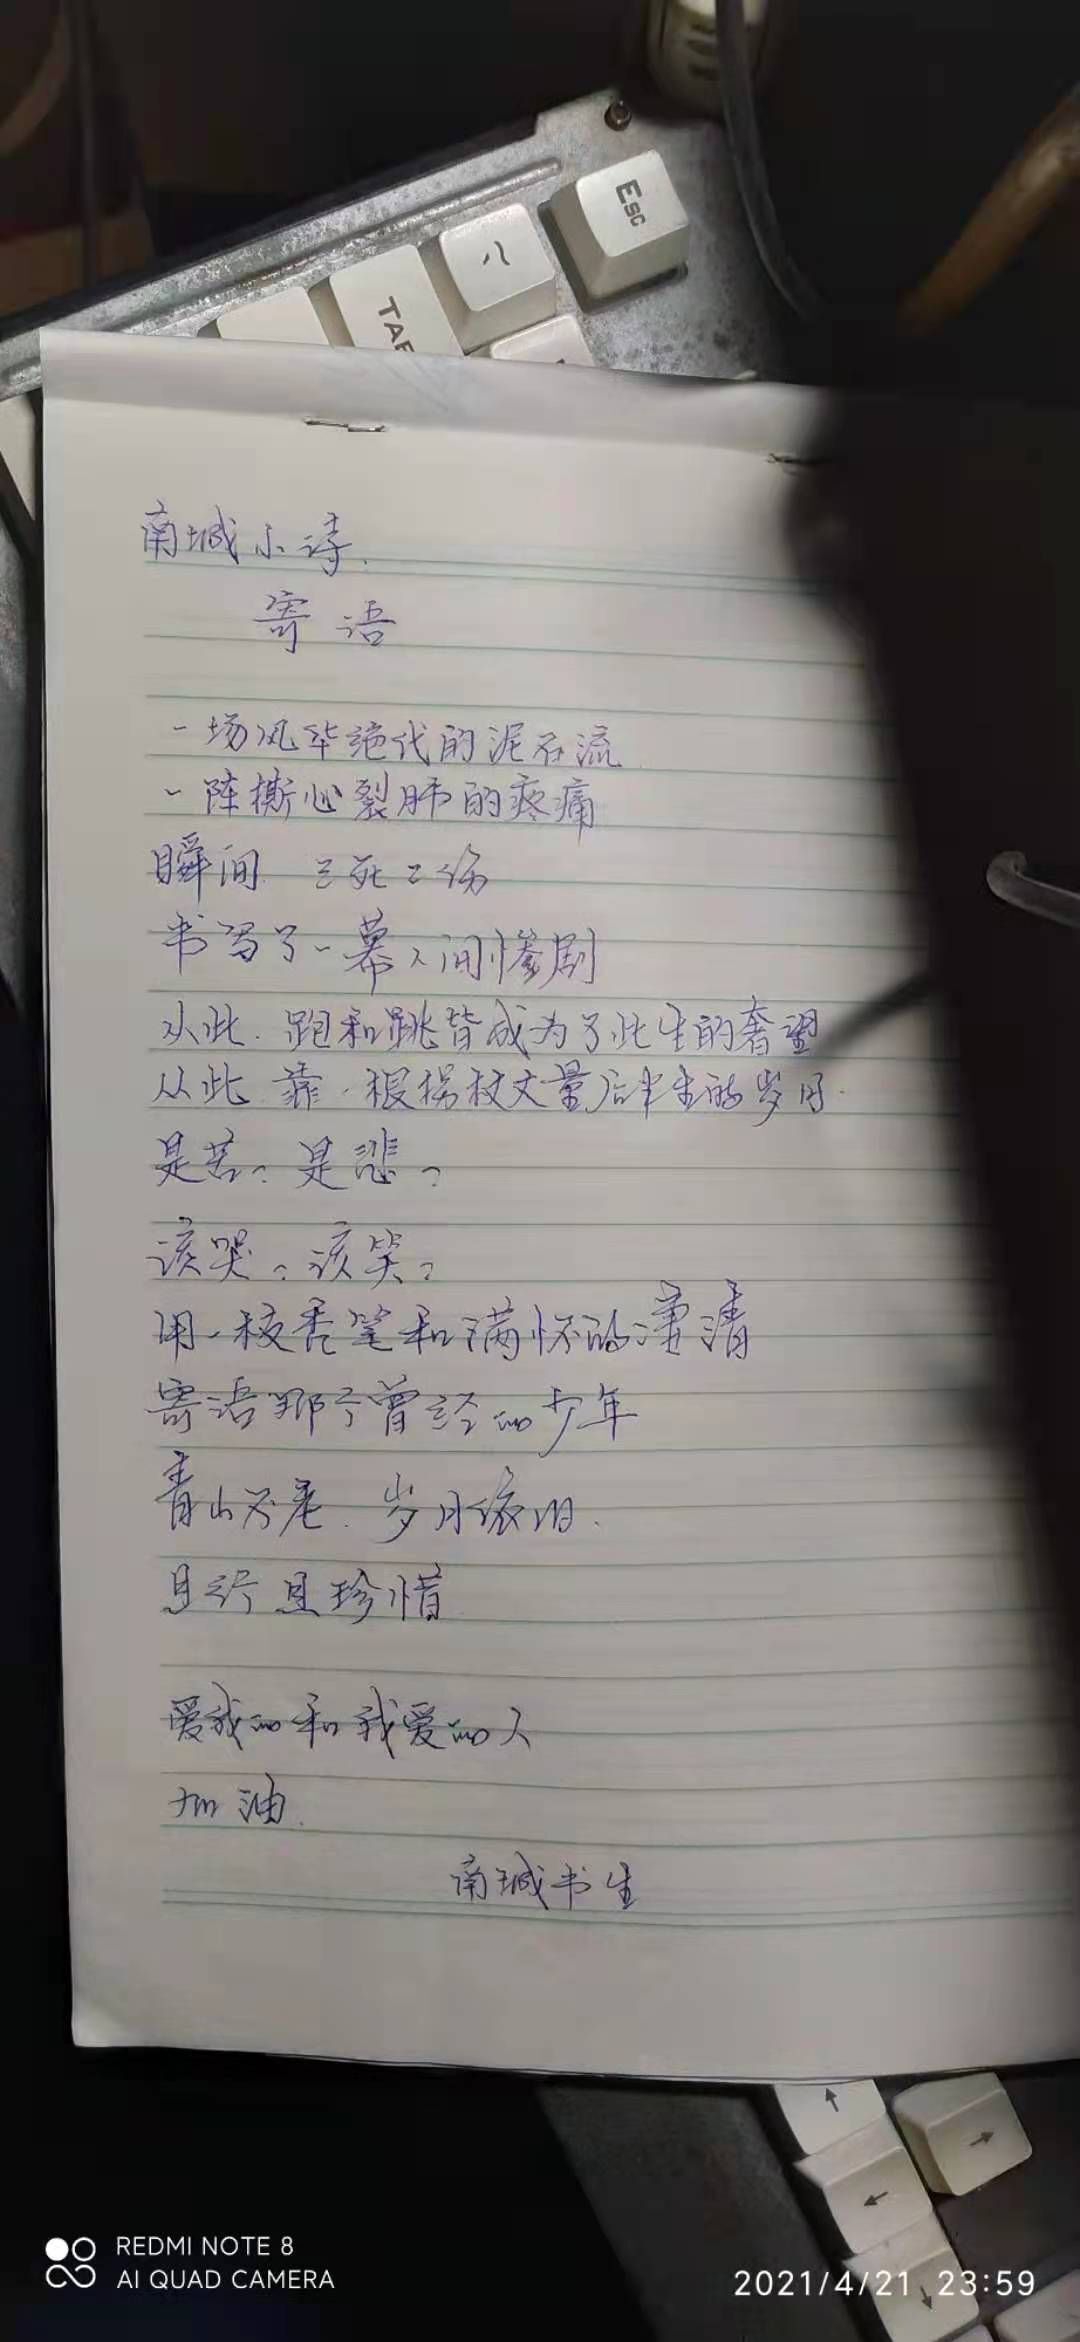 Esc
TAB
南城小诗.
寄语
一场风华绝代的泥石流
一阵撕心裂肺的疼痛
瞬间 三死二伤
书写了一幕人间惨剧
从此.跑和跳皆成为了此生的奢望
从此 靠一根拐杖丈量后半生的岁月.
是苦?是悲?
该哭?该笑?
用一枝秃笔和满怀的凄清
寄语那个曾经的少年
青山不老.岁月依旧.
且行且珍惜
爱我的和我爱的人
加油.
南城书生
REDMI NOTE 8
AI QUAD CAMERA
2021/4/21 23:59